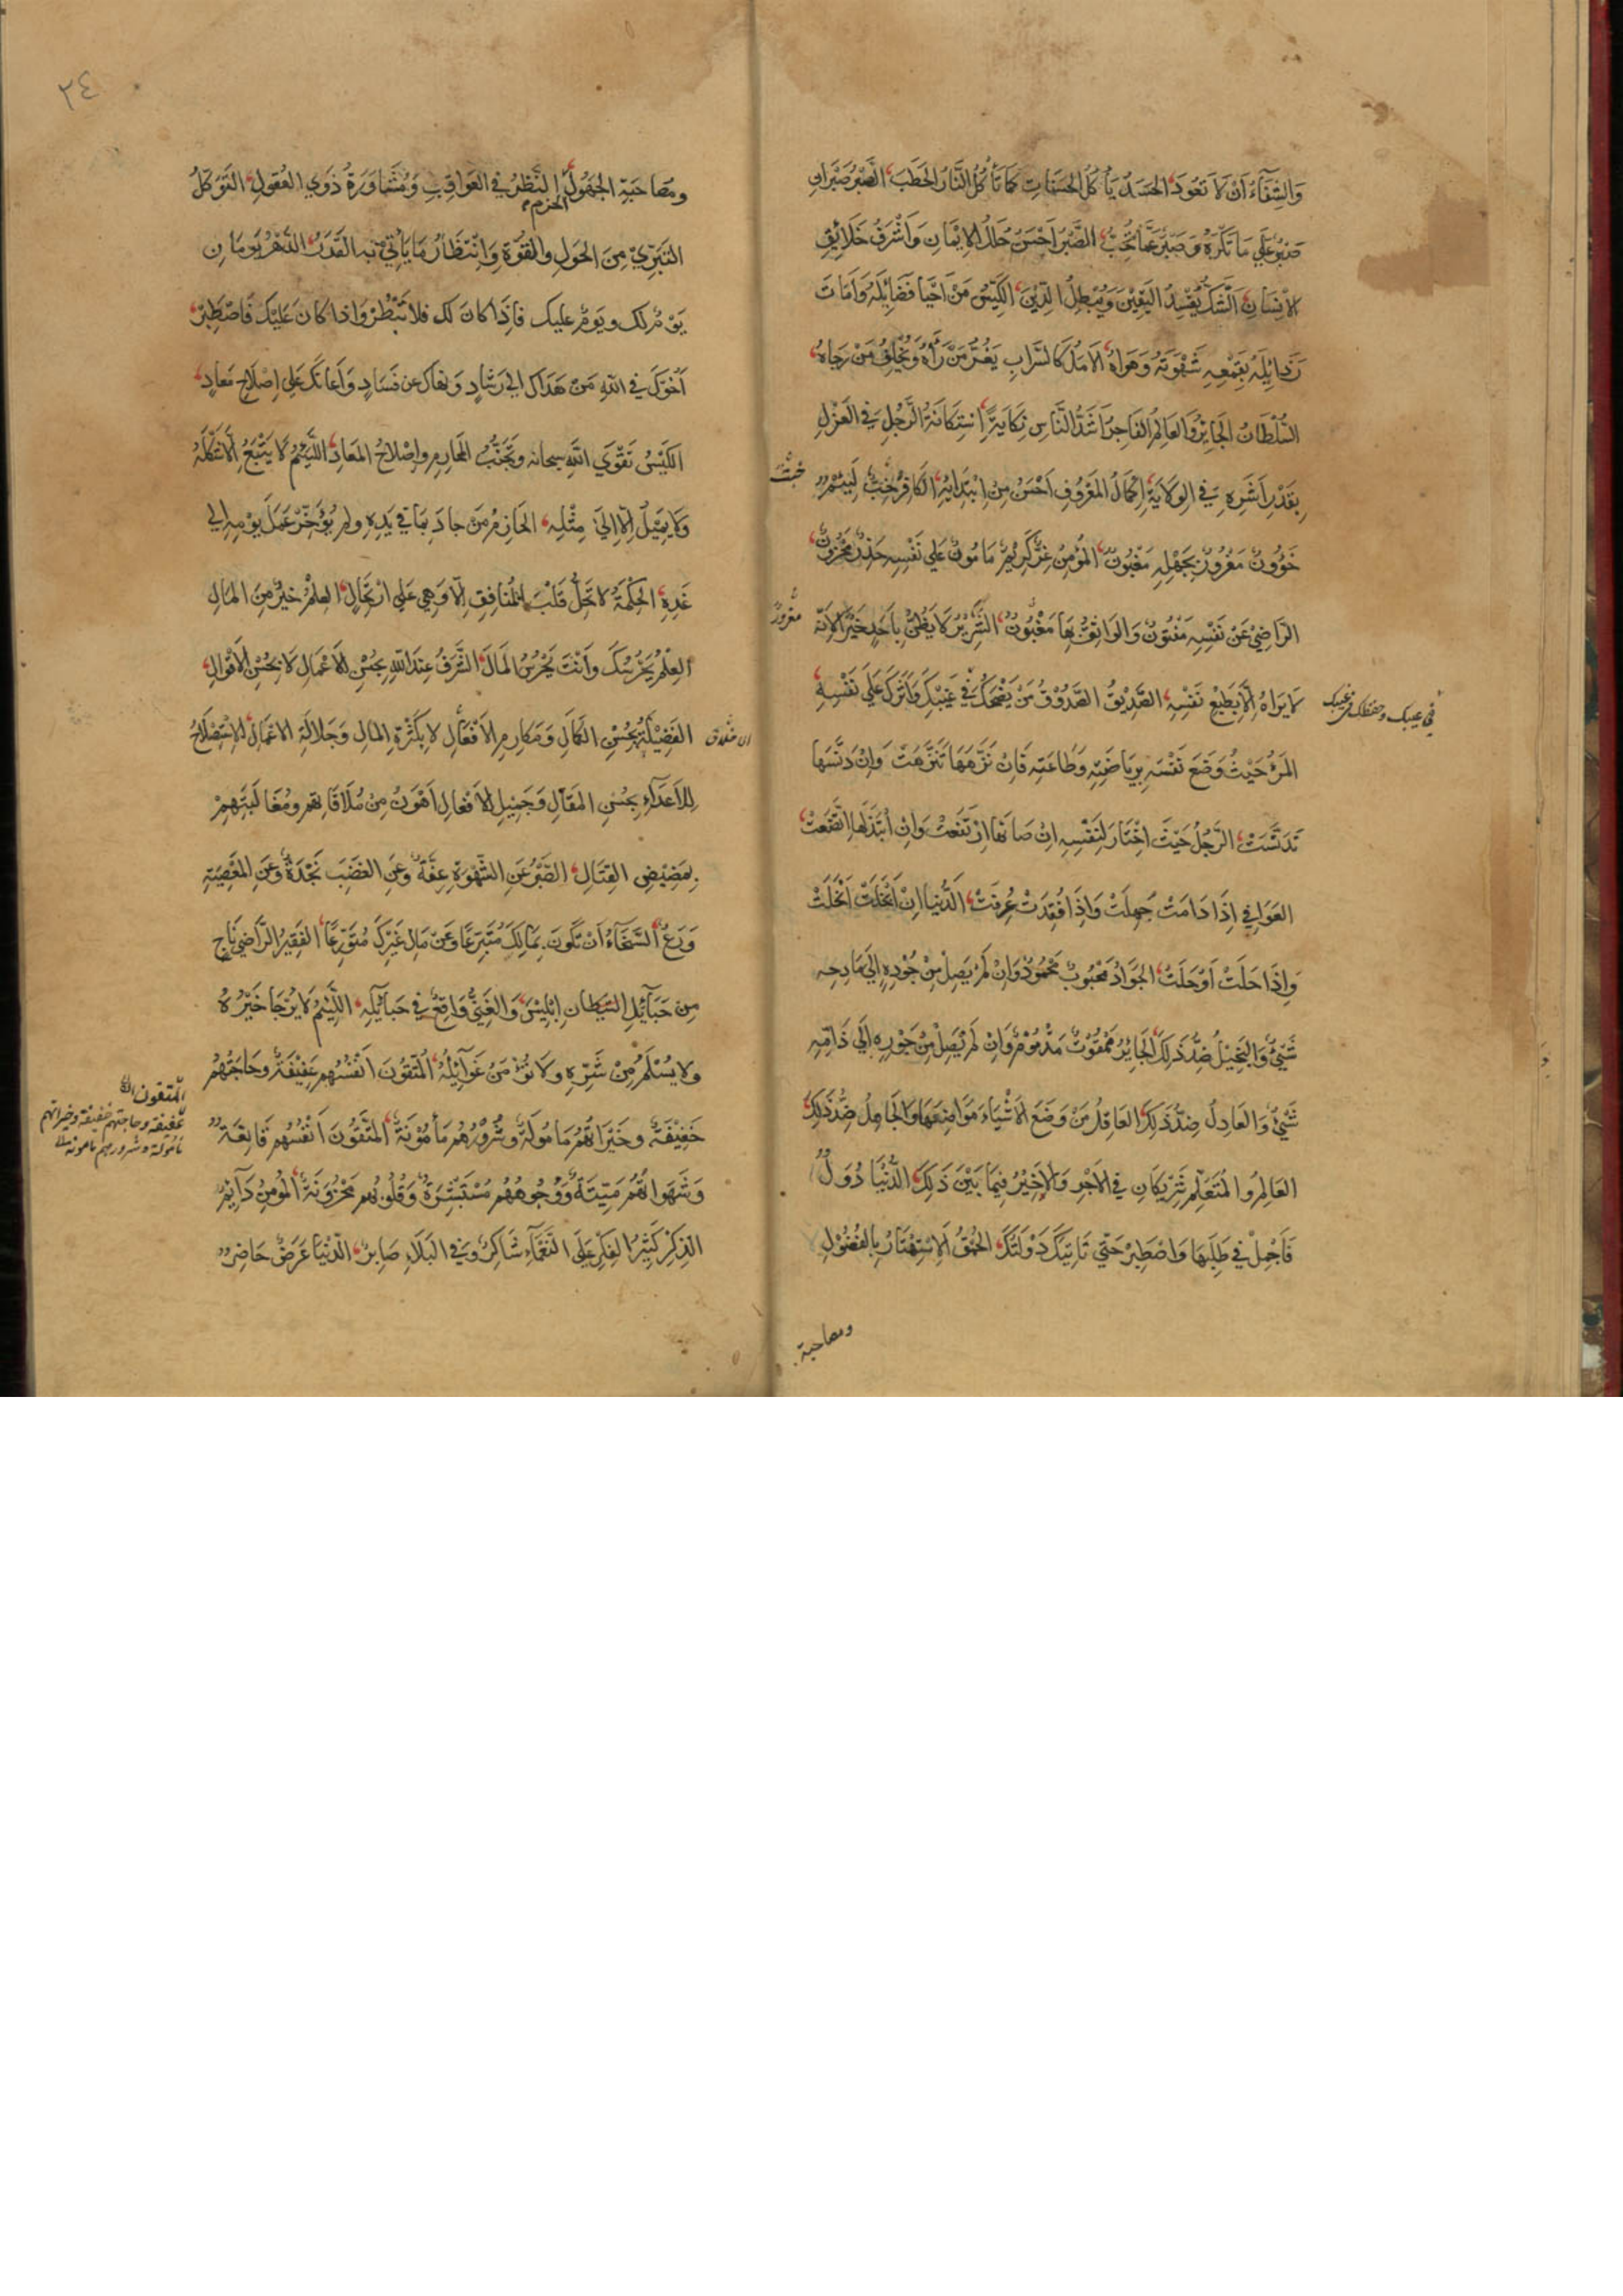 وَالشِّقَآءُ اَنْ لَا تَعُودَ الحَسَدُ يَأْكُلُ الحَسَنَاتِ كَمَا تَأْكُلُ النَّارُ الحَطَبَ الصَّبْرُ صَبْرَانِ
صَبْرٌ عَلَي مَا تَكْرَهُ وَصَبْرٌ عَمَّا تُحِبُّ الصَّبْرُ اَحْسَنُ حُلَلِ الاِيْمَانِ وَاَشْرَفُ خَلَائِقِ
الاِنْسَانِ الشَّكُّ يُفْسِدُ اليَقِيْنَ وَيُبْطِلُ الدِّيْنَ الكَيِّسُ مَنْ اَحْيَا فَضَائِلَهُ وَاَمَاتَ
رَذَائِلَهُ بِقَمْعِهِ شَهْوَتَهُ وَهَوَاهُ الاَمَلُ كَالسَّرَابِ يَغُرُّ مَنْ رَأَهُ وَيُخْلِفُ مَنْ رَجَاهُ
السُّلْطَانُ الجَائِرُ وَالعَالِمُ الفَاجِرُ اَشَدُّ النَّاسِ نِكَايَةً اسْتِكَانَةُ الرَّجُلِ فِي العَزْلِ
بِقَدْرِ اَشَرِهِ فِي الوِلَايَةِ اِكْمَالُ المَعْرُوفِ اَحْسَنُ مِنْ اِبْتِدَائِهِ الكَافِرُ خِبٌّ لَئِيْمٌ
خَبٌّ
خَؤُونٌ مَغْرُورٌ بِجَهْلِهِ مَغْبُونٌ المُؤْمِنُ غِرٌّ كَرِيْمٌ مَامُونٌ عَلَي نَفْسِهِ حَذِرٌ مَحْزُونٌ
الرَّاضِيْ عَنْ نَفْسِهِ مَفْتُونٌ وَالوَاثِقُ بِهَا مَغْبُونٌ الشِّرِّيْرُ لَا يَظُنُّ بِاَحَدٍ خَيْرًا لِاَنَّهُ
مغرورٌ
لَا يَرَاهُ اِلَّا بِطَبْعِ نَفْسِهِ الصَّدِيْقُ الصَّدُوْقُ مَنْ نَصَحَكَ فِي غَيْبِكَ وَاٰثَرَكَ عَلَي نَفْسِهِ
في عيبك وحفظك في غيبك
المَرْءُ حَيْثُ وَضَعَ نَفْسَهُ بِرِيَاضَتِهِ وَطَاعَتِهِ فَاِنْ نَزَّهَهَا تَنَزَّهَتْ وَاِنْ دَنَّسَهَا
تَدَنَّسَتْ الرَّجُلُ حَيْثُ اخْتَارَ لِنَفْسِهِ اِنْ صَانَهَا ارْتَفَعَتْ وَاِنِ ابْتَذَلَهَا اتَّضَعَتْ
العَوَافِي اِذَا دَامَتْ جُهِلَتْ وَاِذَا فُقِدَتْ عُرِفَتْ الدُّنْيَا اِنِ انْجَلَتْ انْجَلَتْ
وَاِذَا حَلَتْ اَوْحَلَتْ الجَوَادُ مَحْبُوبٌ مَحْمُودٌ وَاِنْ لَمْ يَصِلْ مِنْ جُوْدِهِ اِلَي مَادِحِهِ
شَيْئٌ وَالبَخِيْلُ ضِدُّ ذَلِكَ الجَائِرُ مَمْقُوتٌ مَذْمُوْمٌ وَاِنْ لَمْ يَصِلْ مِنْ جَوْرِهِ اِلَي ذَامِّهِ
شَيْئٌ وَالعَادِلُ ضِدُّ ذَلِكَ العَاقِلُ مَنْ وَضَعَ الاَشْيَاءَ مَوَاضِعَهَا وَالجَاهِلُ ضِدُّ ذَلِكَ
العَالِمُ وَالمُتَعَلِّمُ شَرِيْكَانِ فِي الاَجْرِ وَلَا خَيْرَ فِيْمَا بَيْنَ ذَلِكَ الدُّنْيَا دُوَلٌ
فَاَجْمِلْ فِي طَلَبِهَا وَاصْطَبِرْ حَتَّي تَاتِيَكَ دَوْلَتُكَ الحُمْقُ اَلِاسْتِهْتَارُ بِالفُضُوْلِ
ومصاحبة
٢٤
وَمُصَاحَبَةِ الجَهُولِ الحزم النَّظَرُ فِي العَوَاقِبِ وَمُشَاوَرَةُ ذَوِي العُقُولِ التَّوَكُّلُ
التَّبَرِّيْ مِنَ الحَولِ وَالقُوَّةِ وَانْتِظَارُ مَا يَأْتِيْ بِهِ القَدَرُ الدَّهْرُ يَومَانِ
يَوْمٌ لَكَ وَيَومٌ عَلَيكَ فَاِذَا كَانَ لَكَ فَلَا تَبْطَرْ وَاِذَا كَانَ عَلَيْكَ فَاصْطَبِرْ
اَخُوْكَ فِي اللهِ مَنْ هَدَاكَ اِلَى رَشَادٍ وَنَهَاكَ عَنْ فَسَادٍ وَاَعَانَكَ عَلَى اِصْلَاحِ مَعَادٍ
الكَيِّسُ تَقْوَى اللهِ سبحانه وَتَجَنُّبُ المَحَارِمِ وَاِصْلَاحُ المَعَادِ اللَّئِيْمُ لَا يَتْبَعُ اِلَّا شَكْلَهُ
وَلَا يَمِيْلُ اِلَّا اِلَى مِثْلِهِ الحَازِمُ مَنْ جَادَ بِمَا فِي يَدِهِ وَلَمْ يُؤَخِّرْ عَمَلَ يَوْمِهِ اِلَى
غَدِهِ الحِكْمَةُ لَا تَحُلُّ قَلْبَ المُنَافِقِ اِلَّا وَهِيَ عَلَى ارْتِحَالٍ العِلْمُ خَيْرٌ مِنَ المَالِ
العِلْمُ يَحْرُسُكَ وَاَنْتَ تَحْرُسُ المَالَ الشَّرَفُ عِنْدَ اللهِ بِحُسْنِ الاَعْمَالِ لَا بِحُسْنِ الاَقْوَالِ
الفَضِيْلَةُ بِحُسْنِ الكَمَالِ وَمَكَارِمِ الاَفْعَالِ لَا بِكَثْرَةِ المَالِ وَجَلَالَةِ الاَعْمَالِ الاِسْتِصْلَاحُ
لِلاَعْدَآءِ بِحُسْنِ المَقَالِ وَجَمِيْلِ الاَفْعَالِ اَهْوَنُ مِنْ مُلَاقَاتِهِمْ وَمُغَالَبَتِهِمْ
بِمَضِيْضِ القِتَالِ الصَّبْرُ عَنِ الشَّهْوَةِ عِفَّةٌ وَعَنِ الغَضَبِ نَجْدَةٌ وَعَنِ المَعْصِيَةِ
وَرَعٌ السَّخَآءُ اَنْ تَكُونَ بِمَالِكَ مُتَبَرِّعًا وَعَنْ مَالِ غَيْرِكَ مُتَوَرِّعًا الفَقِيْرُ الرَّاضِيْ نَاجٍ
مِنْ حَبَآئِلِ الشَّيْطَانِ اِبْلِيْسَ وَالغَنِيُّ وَاقِعٌ فِي حَبَآئِلِهِ اللَّئِيْمُ لَا يُرْجَا خَيْرُهُ
وَلَا يُسْلَمُ مِنْ شَرِّهِ وَلَا يُؤْمَنُ مِنْ غَوَآئِلِهِ المُتَّقُونَ اَنْفُسُهُمْ عَفِيْفَةٌ وَحَاجَتُهُمْ
المتقون انفسهم
عفيفة وحاجتهم خفيفة وخيراتهم
مأمولة وشرورهم مأمونة
خَفِيْفَةٌ وَخَيْرَاتُهُمْ مَامُولَةٌ وَشُرُوْرُهُمْ مَأمُوْنَةٌ المُتَّقُونَ اَنْفُسُهُمْ قَانِعَةٌ
وَشَهَوَاتُهُمْ مَيِّتَةٌ وَوُجُوهُهُمْ مُسْتَبْشِرَةٌ وَقُلُوبُهُمْ مَحْزُوْنَةٌ المُؤْمِنُ دَآئِمُ
الذِّكْرِ كَثِيْرُ الفِكْرِ عَلَى النَّعْمَآءِ شَاكِرٌ وَفِي البَلَاءِ صَابِرٌ الدُّنْيَا عَرَضٌ حَاضِرٌ